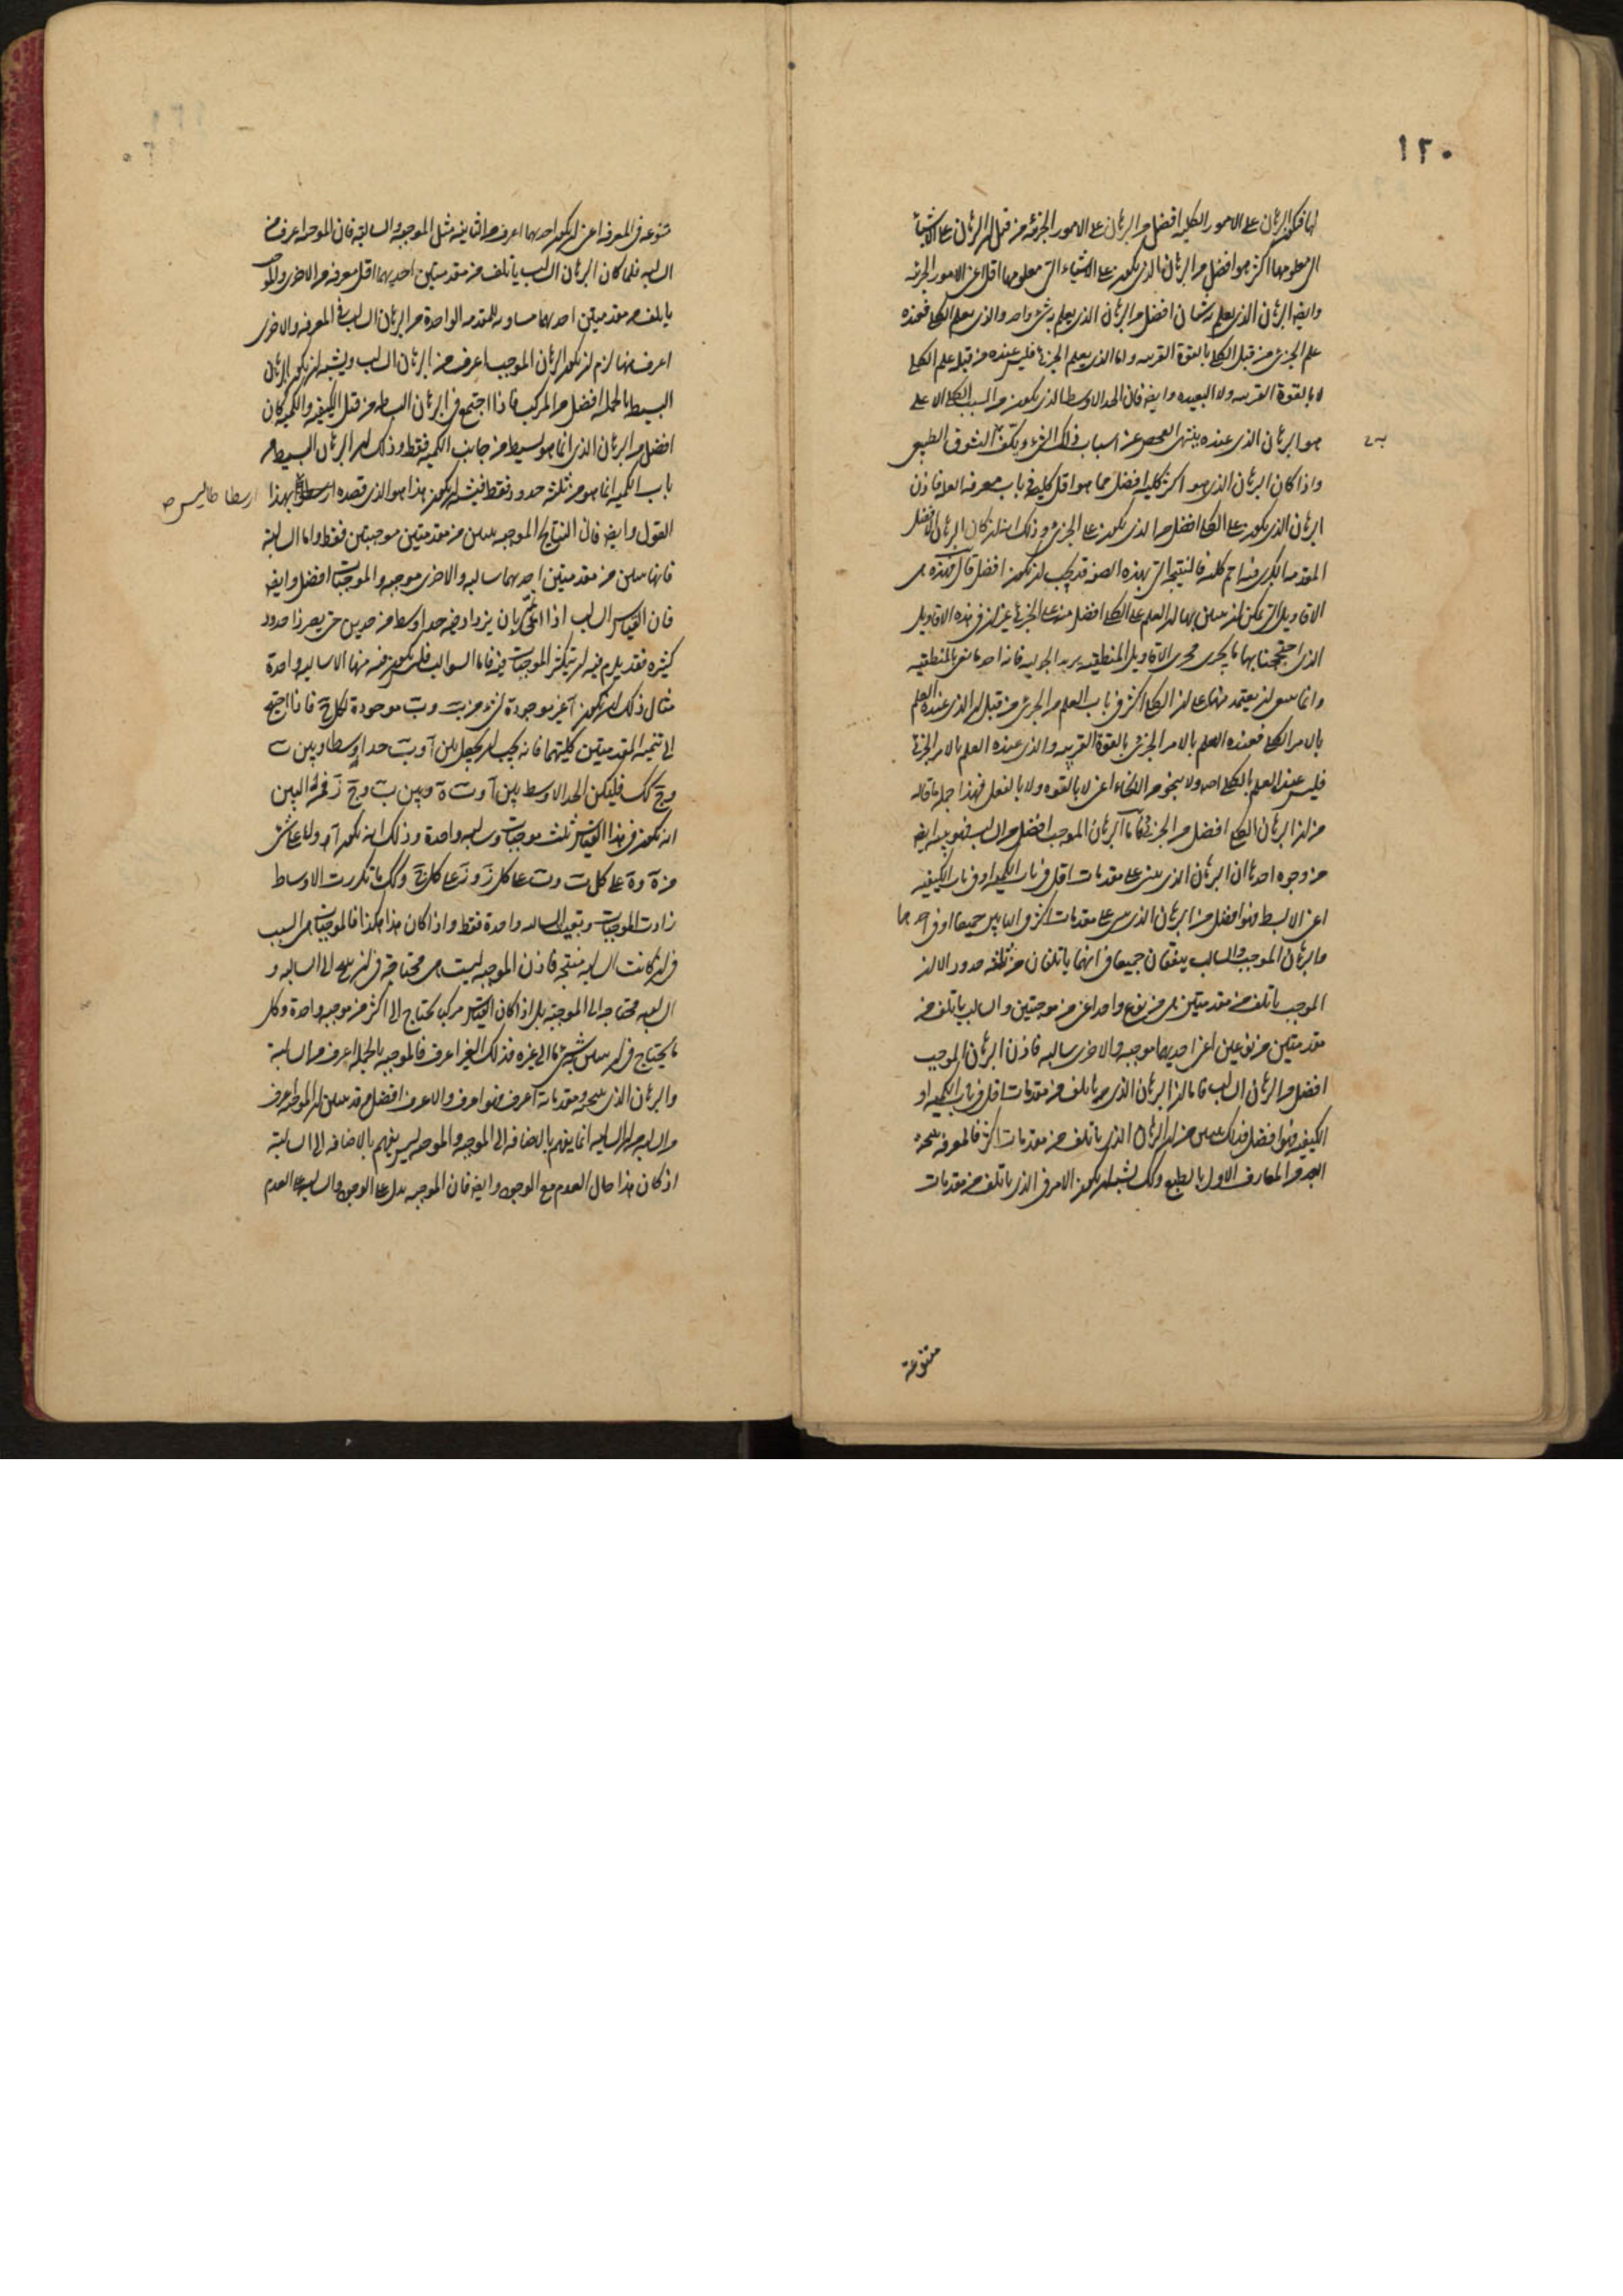 ١٢٠
لها فيكون البرهان على الامور الكليه افضل من البرهان على الامور الجزئيه من قبل ان البرهان على الاشياء
التى معلومها اكثر هو افضل من البرهان الذى يكون على الاشياء التى معلومها اقل اعنى الامور الجزئيه
وايضا البرهان الذى يعلم به شيئان افضل من البرهان الذى يعلم به شىء واحد والذى يعلم الكلى فعنده
علم الجزئى من قبل الكلى بالقوة القريبه واما الذى يعلم الجزئى فليس عنده من قبله علم الكلى
لا بالقوة القريبه ولا البعيده وايضا فان الحد الاوسط الذى يكون من السبب الكلى الاعلى
هو البرهان الذى عنده ينتهى الفحص عن اسباب ذلك الشىء ويكف التشوق الطبيعى
به
واذا كان البرهان الذى هو اكثر كليه افضل مما هو اقل كليه فى باب معرفه العله فاذن
البرهان الذى يكون على الكلى افضل من الذى يكون على الجزئى وذلك انه ان كان البرهان الافضل
المقدمه الكبرى فيه اتم كليه فالنتيجه التى بهذه الصفه قد يجب ان تكون افضل قال فهذه هى
الاقاويل التى يمكن ان يبين بها ان العلم على الكلى افضل منه على الجزئى غير ان فى هذه الاقاويل
الذى احتججنا بها ما يجرى مجرى الاقاويل المنطقيه يريد الجدليه فانه احد ما يعنى بالمنطقيه
وانما ينبغى ان يعتمد منها على ان الكلى اكثر فى باب العلم من الجزئى من قبل ان الذى عنده العلم
بالامر الكلى فعنده العلم بالامر الجزئى بالقوة القريبه والذى عنده العلم بالامر الجزئى
فليس عنده العلم بالكلى اصلا ولا بنحو من الانحاء اعنى لا بالقوه ولا بالفعل فهذا جمله ما قاله
من ان البرهان الكلى افضل من الجزئى فاما ان البرهان الموجب افضل من السالب فهو يبينه ايضا
من وجوه احدها ان البرهان الذى يبنى على مقدمات اقل فى باب الكميه او فى باب الكيفيه
اعنى الابسط فهو افضل من البرهان الذى يبنى على مقدمات اكثر فى البابين جميعا او فى احدهما
والبرهان الموجب والسالب يتفقان جميعا فى انهما ياتلفان من ثلثة حدود الا ان
الموجب ياتلف من مقدمتين هى من نوع واحد اعنى من موجبتين والسالب ياتلف من
مقدمتين من نوعين اعنى احديهما موجبه والاخرى سالبه فاذن البرهان الموجب
افضل من البرهان السالب فاما ان البرهان الذى هو ياتلف من مقدمات اقل فى باب الكميه او
الكيفيه فهو افضل فذلك يبين من ان البرهان الذى ياتلف من مقدمات اكثر فالمعرفه بنتيجته
ابعد من المعارف الاول بالطبع وكذلك يشبه ان يكون الامر فى الذى ياتلف من مقدمات
متنوعة
متنوعه فى المعرفه اعنى ان تكون احديهما اعرف من الثانيه مثل الموجبه والسالبه فان الموجبه اعرف من
السالبه فلما كان البرهان السالب ياتلف من مقدمتين احديهما اقل معرفه من الاخرى والموجب
ياتلف من مقدمتين احديهما مساويه للمقدمه الواحدة من البرهان السالب فى المعرفه والاخرى
اعرف منها لزم ان يكون البرهان الموجب اعرف من البرهان السالب ويشبه ان يكون البرهان
البسيط بالجمله افضل من المركب فاذا اجتمع فى البرهان البساطه من قبل الكيفيه والكميه كان
افضل من البرهان الذى انما هو بسيط من جانب الكميه فقط وذلك ان البرهان البسيط من
باب الكميه انما هو من ثلثة حدود فقط فيشبه ان يكون هذا هو الذى قصده ارسطو بهذا
ارسطاطاليس صح
القول وايضا فان النتايج الموجبه تبين من مقدمتين موجبتين فقط واما السالبة
فانها تبين من مقدمتين احديهما سالبه والاخرى موجبه والموجبات افضل وايضا
فان القياس السالب اذا انمى بان يزداد فيه حدا اوسط من حدين حتى يصير ذا حدود
كثيره فقد يلزم فيه ان تكثر الموجبات فيه فاما السوالب فليس يكون فيه منها الا سالبه واحدة
مثال ذلك ان تكون آ غير موجودة لشىء من ب وب موجودة لكل ج فاذا احتيج
الى تنميه المقدمتين كليتهما فانه يجب ان يجعل بين آ وب حدا اوسطا وبين ب
وج كك فليكن الحد الاوسط بين آ وب ه وبين ب وج ز فمن البين
انه يكون فى هذا القياس ثلث موجبات وسالبه واحدة وذلك انه تكون آ ولا على شىء
من ه وه على كل ب وب على كل ز وز على كل ج وكلما تكررت الاوساط
زادت الموجبات وبقيت السالبه واحدة فقط واذا كان هذا هكذا فالموجبات هى السبب
فى ان كانت السالبه منتجه فاذن الموجبه ليست هى محتاجة فى ان تنتج الى السالبه و
السالبه محتاجه الى الموجبة بل اذا كان القياس مركبا يحتاج الى اكثر من موجبه واحدة وكل
ما يحتاج فى ان يبين بشىء ما الى غيره فذلك الغير اعرف فالموجبه بالجمله اعرف من السالبة
والبرهان الذى نتيجته ومقدماته اعرف فهو اعرف والاعرف افضل وقد يبين ان الموجبه اعرف
من السالبه من ان السالبه انما يفهم بالاضافه الى الموجبه والموجبه ليس يفهم بالاضافه الى السالبة
اذ كان هذا حال العدم مع الوجود وايضا فان الموجبه يدل على الوجود والسالبه على العدم